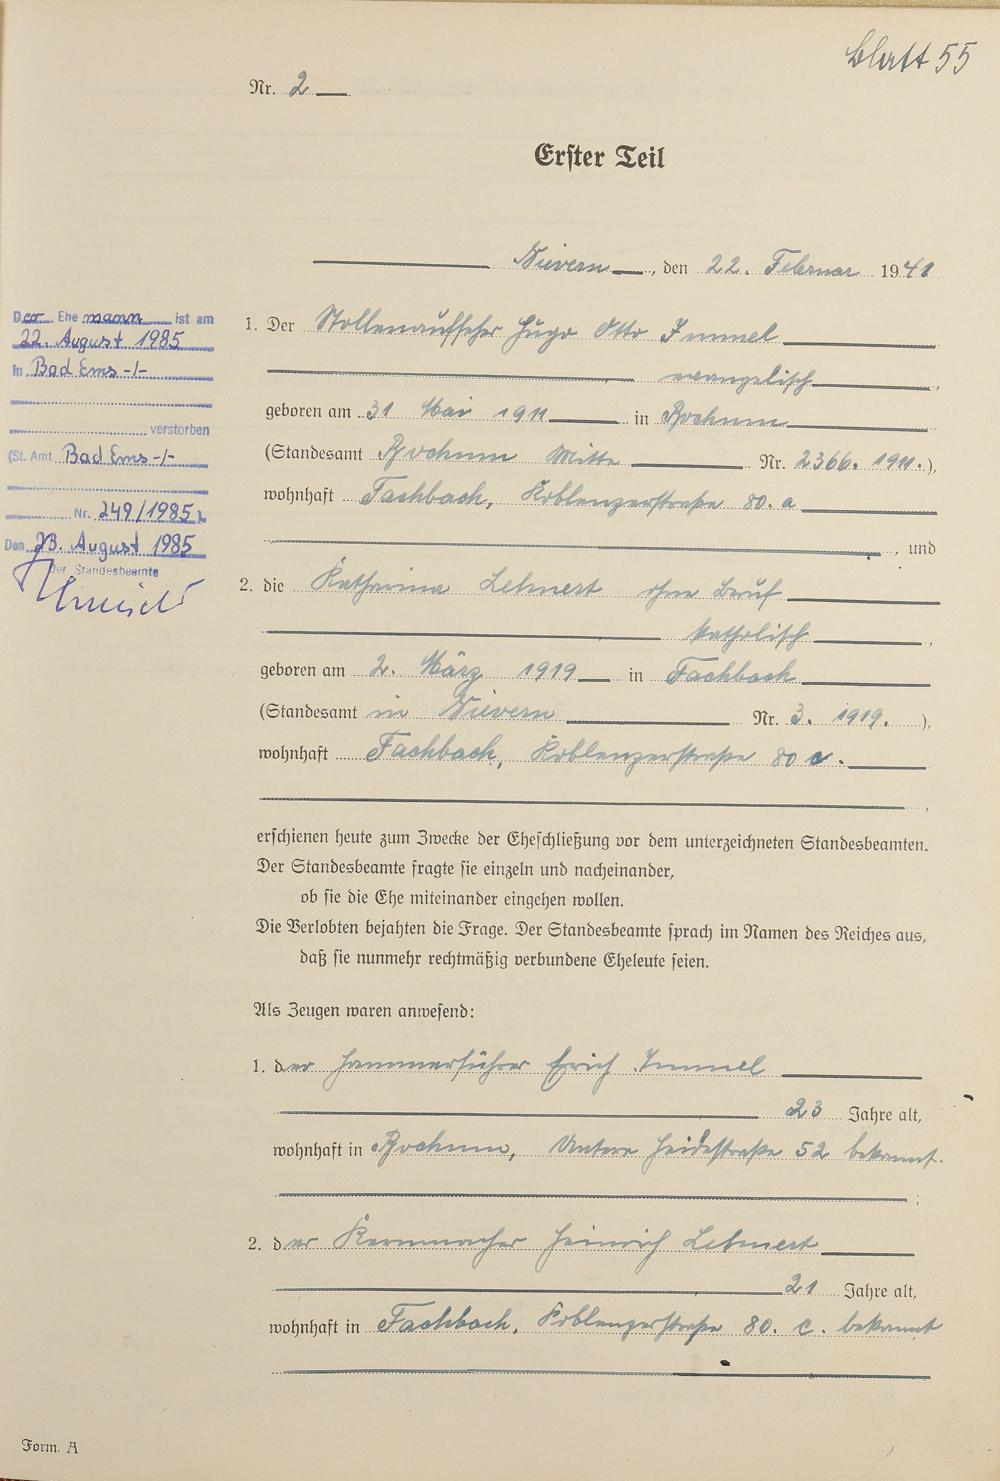 Blatt 55
Nr. 2
Erster Teil
Nievern, den 22. Februar 1941
1. Der Stollenaufseher Hugo Otto Immel
evangelisch,
geboren am 31 Mai 1911 in Bochum
(Standesamt Bochum Mitte Nr. 2366. 1911.),
wohnhaft Fachbach, Koblenzerstraße 80. a
, und
2. die Katharina Lehnert ohne Beruf
katholisch,
geboren am 2. März 1919 in Fachbach
(Standesamt in Nievern Nr. 3. 1919.),
wohnhaft Fachbach, Koblenzerstraße 80 c.
,
erschienen heute zum Zwecke der Eheschließung vor dem unterzeichneten Standesbeamten.
Der Standesbeamte fragte sie einzeln und nacheinander,
ob sie die Ehe miteinander eingehen wollen.
Die Verlobten bejahten die Frage. Der Standesbeamte sprach im Namen des Reiches aus,
daß sie nunmehr rechtmäßig verbundene Eheleute seien.
Als Zeugen waren anwesend:
1. der Hammerführer Erich Immel
23 Jahre alt,
wohnhaft in Bochum, Untere Heidestraße 52 bekannt.
;
2. der Kernmacher Heinrich Lehnert
21 Jahre alt,
wohnhaft in Fachbach, Koblenzerstraße 80. c. bekannt
Der Ehemann ist am
22. August 1985
in Bad Ems -/-
verstorben
(St. Amt Bad Ems -/-
Nr. 249/1985)
Den 23. August 1985
Der Standesbeamte
Form. A